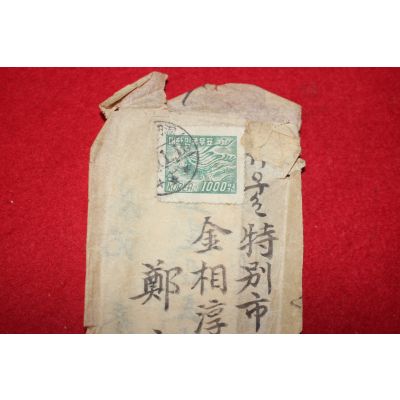 대한민국우표
1000
서울特別市
金相淳
鄭